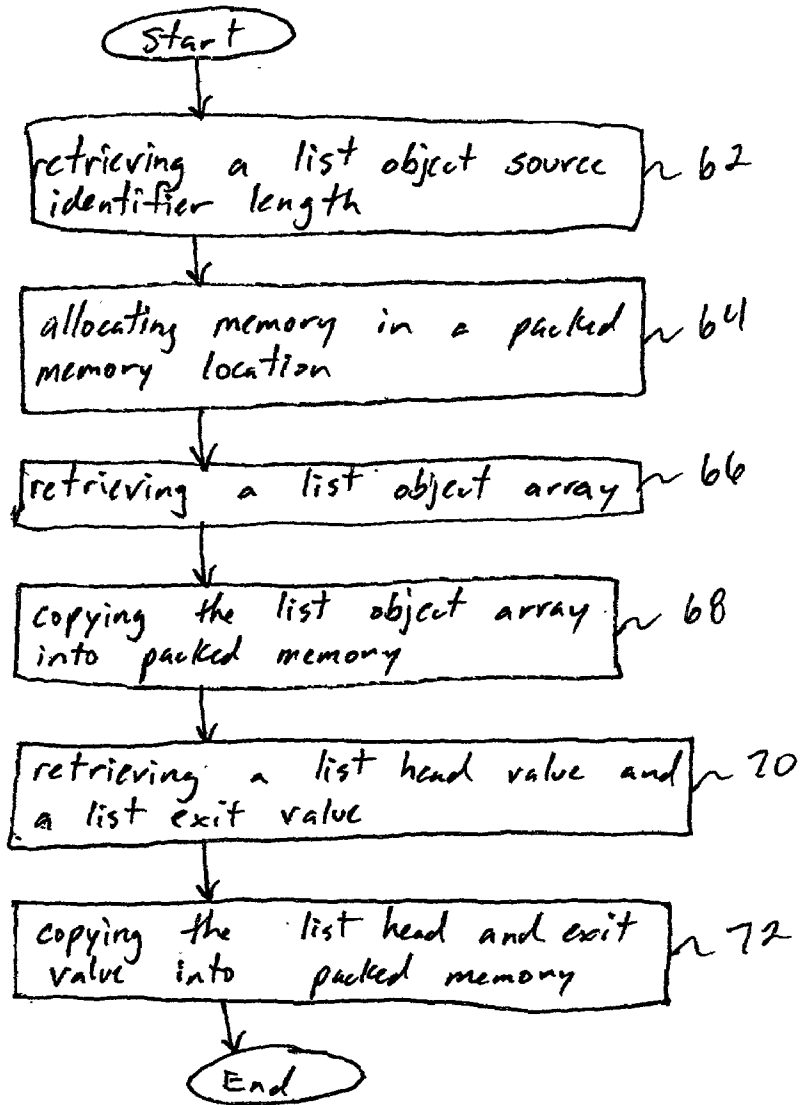 Start
retrieving a list object source
identifier length
62
allocating memory in a packed
memory location
64
retrieving a list object array
66
copying the list object array
into packed memory
68
retrieving a list head value and
a list exit value
70
copying the list head and exit
value into packed memory
72
End